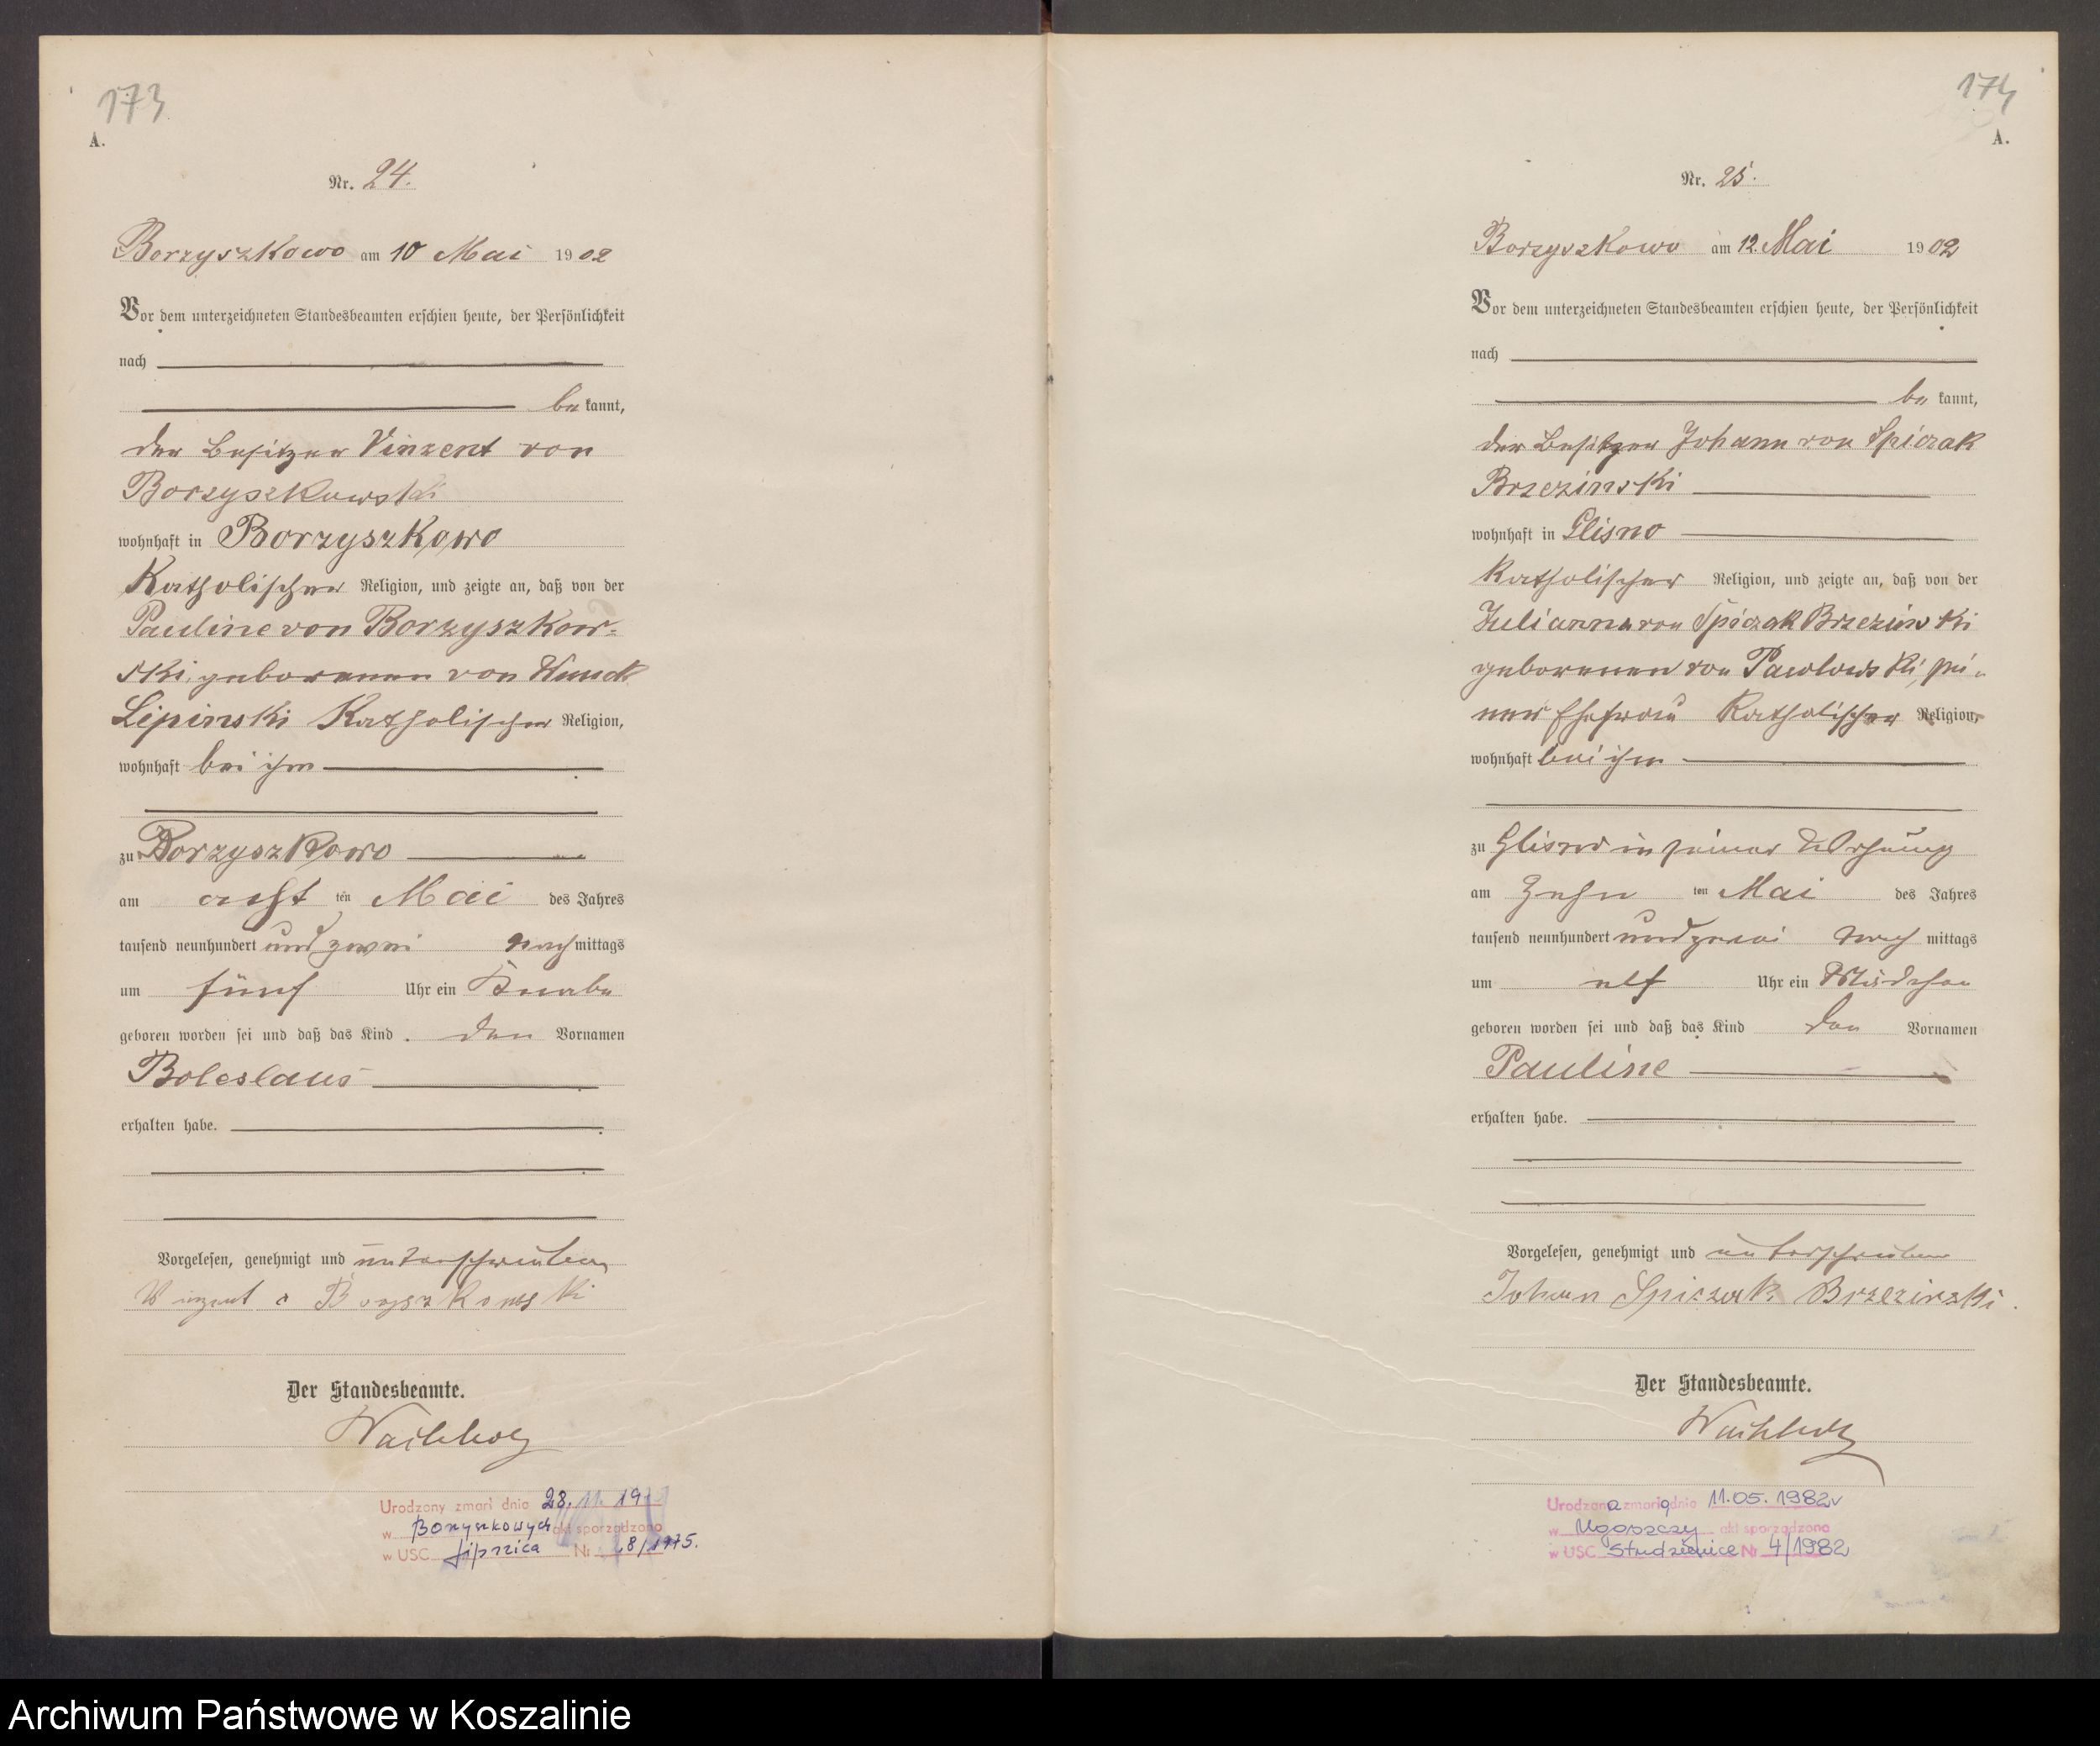 173
A.
Nr. 24.
Borzyszkowo am 10 Mai 1902
Vor dem unterzeichneten Standesbeamten erschien heute, der Persönlichkeit
nach
bekannt,
der Besitzer Vinzent von
Borzyszkowski
wohnhaft in Borzyszkowo
Katholischer Religion, und zeigte an, daß von der
Pauline von Borzyszkow-
ski, geborenen von
Lipinski Katholischer Religion,
wohnhaft bei ihm
zu Borzyszkowo
am acht ten Mai des Jahres
tausend neunhundert und zwei nachmittags
um fünf Uhr ein Knabe
geboren worden sei und daß das Kind den Vornamen
Boleslaus
erhalten habe.
Vorgelesen, genehmigt und unterschrieben
Der Standesbeamte.
Urodzony zmarł dnia 28. 11. 19
w Borzyszkowych akt sporządzono
w USC Lipnica Nr 8/1975.
174
A.
Nr. 25.
Borzyszkowo am 12. Mai 1902
Vor dem unterzeichneten Standesbeamten erschien heute, der Persönlichkeit
nach
bekannt,
der Besitzer Johann von Spiczak
Brzezinski
wohnhaft in Glisno
Katholischer Religion, und zeigte an, daß von der
Julianna von Spiczak Brzezinski
geborenen von Pawlowski, sei-
ner Ehefrau Katholischer Religion,
wohnhaft bei ihm
zu Glisno in seiner Wohnung
am Zehn ten Mai des Jahres
tausend neunhundert und zwei Nachmittags
um elf Uhr ein Mädchen
geboren worden sei und daß das Kind den Vornamen
Pauline
erhalten habe.
Vorgelesen, genehmigt und unterschrieben
Johan Spiczak Brzezinski.
Der Standesbeamte.
Urodzona zmarła dnia 11.05.1982
w Ugoszczy akt sporządzono
w USC Studzienice Nr 4/1982
Archiwum Państwowe w Koszalinie